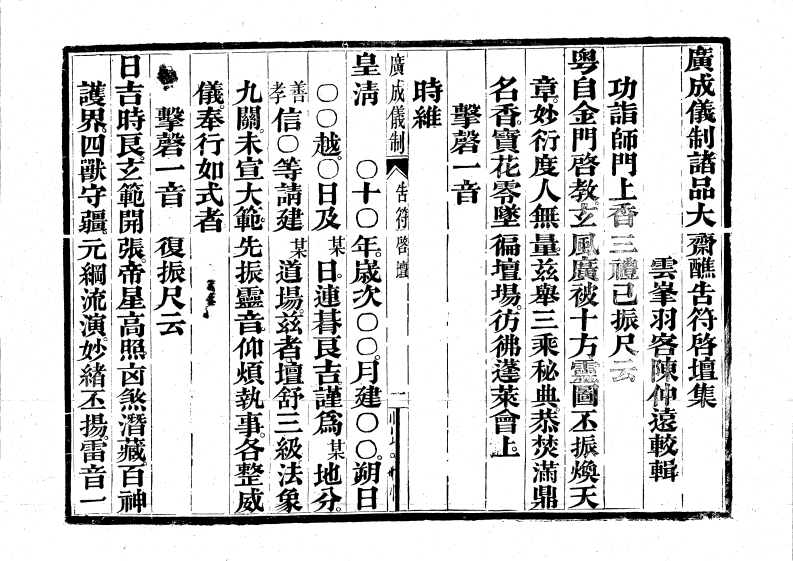 廣成儀制諸品大齋醮告符啓壇集
雲峯羽客陳仲遠較輯
功詣師門上香三禮已振尺云
粤自金門啓教。玄風廣被十方靈圖丕振煥天
章。妙衍度人無量。茲舉三乘秘典。恭焚滿鼎
名香。寶花零墜徧壇場。彷彿蓬萊會上。
擊磬一音
時維
廣成儀制 告符啓壇 一
皇清 〇十〇年。歲次〇〇。月建〇〇。朔日
〇〇越。〇日及某日。連朞良吉。謹爲某地分。
善孝信〇等請建某道場。茲者。壇舒三級法象
九關。未宣大範先振靈音。仰煩執事。各整威
儀。奉行如式者
擊磬一音 復振尺云
日吉時良。玄範開張。帝星高照。卤煞潛藏。百神
護界。四獸守疆。元綱流演。妙緒丕揚。雷音一